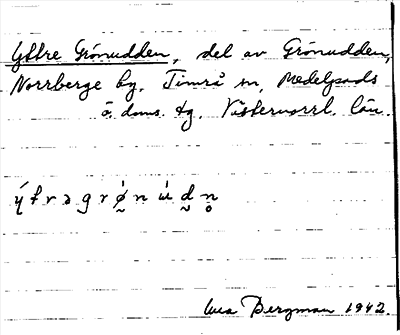 Yttre Grönudden, del av Grönudden,
Norrberge by, Timrå sn, Medelpads
ö. doms. tg, Västernorrl. län.
ý t r ə g r ø̀ n ù d̰ n̥
Bergman 1942.